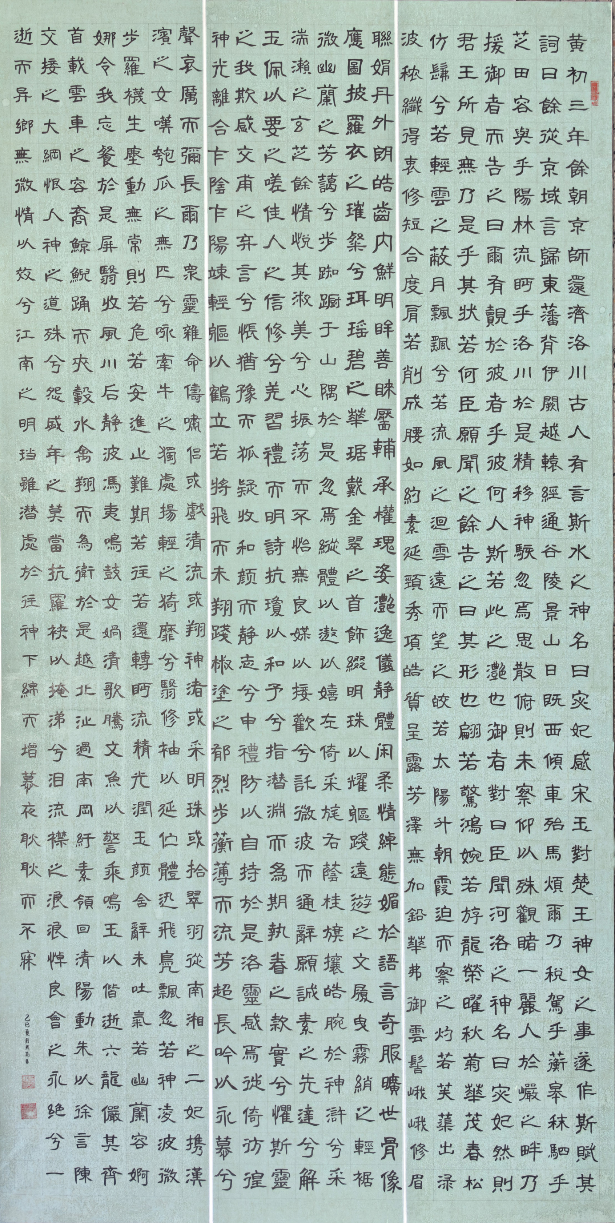 黄初三年餘朝京師還濟洛川古人有言斯水之神名曰宓妃感宋玉對楚王神女之事遂作斯賦其
詞曰餘從京域言歸東藩背伊闕越轅經通谷陵景山日既西傾車殆馬煩爾乃稅駕乎蘅皋秣駟乎
芝田容與乎陽林流眄乎洛川於是精移神駭忽焉思散俯則未察仰以殊觀睹一麗人於巖之畔乃
援御者而告之曰爾有覿於彼者乎彼何人斯若此之灧也御者對曰臣聞河洛之神名曰宓妃然則
君王所見無乃是乎其狀若何臣願聞之餘告之曰其形也翩若驚鴻婉若游龍榮曜秋菊華茂春松
仿髴兮若輕雲之蔽月飄飄兮若流風之迴雪遠而望之皎若太陽升朝霞迫而察之灼若芙蕖出淥
波穠纖得衷修短合度肩若削成腰如約素延頸秀項皓質呈露芳澤無加鉛華弗御雲髻峨峨修眉
聯娟丹外朗皓齒内鮮明眸善睞靨輔承權瑰姿灧逸儀静體闲柔情綽態媚於語言奇服曠世骨像
應圖披羅衣之璀粲兮珥瑶碧之華琚戴金翠之首飾綴明珠以耀軀踐遠遊之文履曳霧綃之輕裾
微幽蘭之芳藹兮步踟蹰于山隅於是忽焉縱體以遨以嬉左倚采旄右蔭桂旗攘皓腕於神滸兮采
湍瀨之玄芝餘情悦其淑美兮心振荡而不怡無良媒以接歡兮託微波而通辭願誠素之先達兮解
玉佩以要之嗟佳人之信修兮羌習禮而明詩抗瓊以和予兮指潜淵而為期執眷之款實兮懼斯靈
之我欺感交甫之弃言兮悵猶豫而狐疑收和颜而静志兮申禮防以自持於是洛靈感焉徙倚彷徨
神光離合乍陰乍陽竦輕軀以鶴立若將飛而未翔踐椒塗之郁烈步蘅薄而流芳超長吟以永慕兮
聲哀厲而彌長爾乃衆靈雜命儔嘯侣或戲清流或翔神渚或采明珠或拾翠羽從南湘之二妃携漢
濱之女嘆匏瓜之無匹兮咏牽牛之獨處揚輕之猗靡兮翳修袖以延伫體迅飛凫飄忽若神凌波微
步羅襪生塵動無常則若危若安進止難期若往若還轉眄流精光潤玉颜含辭未吐氣若幽蘭容婀
娜令我忘餐於是屏翳收風川后静波馮夷鳴鼓女媧清歌騰文魚以警乘鳴玉以偕逝六龍儼其齊
首載雲車之容裔鲸鲵踊而夾轂水禽翔而為衛於是越北沚過南岡紆素領回清陽動朱以徐言陳
交接之大綱恨人神之道殊兮怨盛年之莫當抗羅袂以掩涕兮泪流襟之浪浪悼良會之永絶兮一
逝而异鄉無微情以效兮江南之明珰雖潜處於往神下綿而增慕夜耿耿而不寐